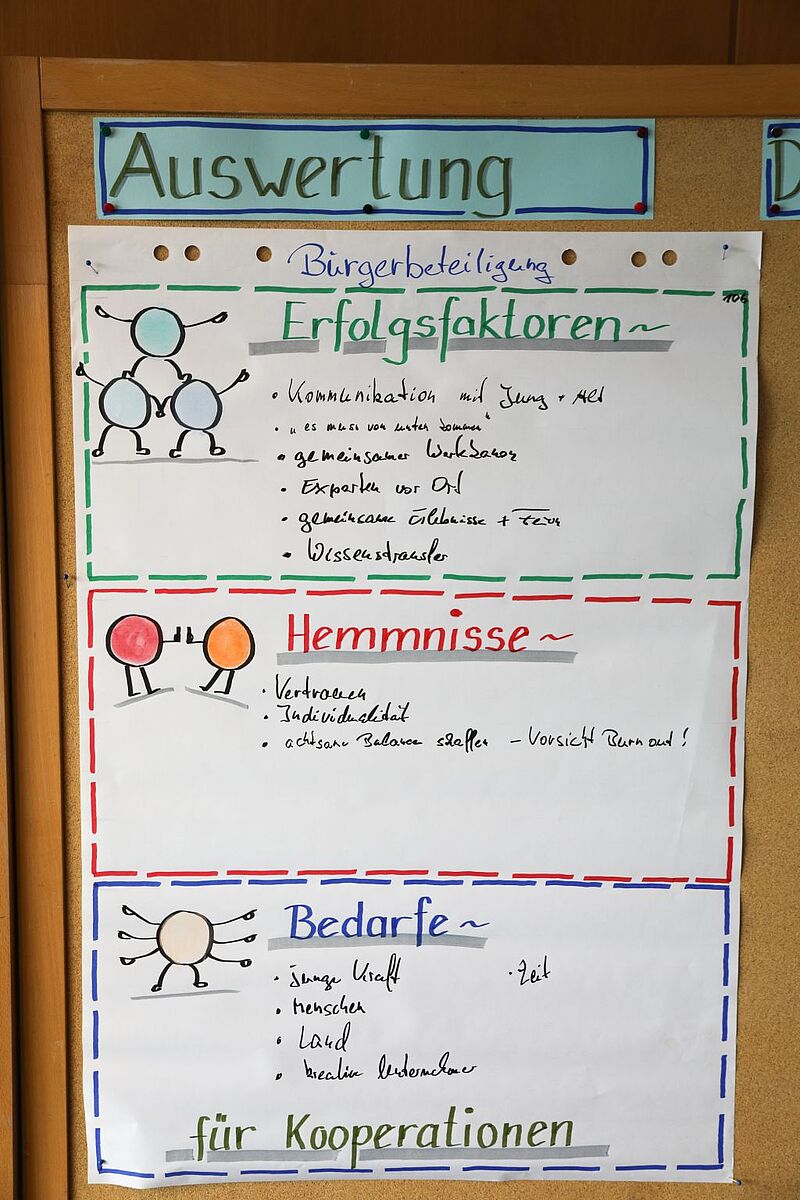 Auswertung
D
Bürgerbeteiligung
106
Erfolgsfaktoren~
• Kommunikation mit Jung + Alt
• "es muss von unten kommen"
• gemeinsamer
• Experten vor Ort
• gemeinsame Erlebnisse + Feiern
• Wissenstransfer
Hemmnisse~
• Vertrauen
• Individualität
• achtsame Balance schaffen – Vorsicht Burn out!
Bedarfe~
• junge Kraft • Zeit
• Menschen
• Land
• kreative Unternehmer
für Kooperationen